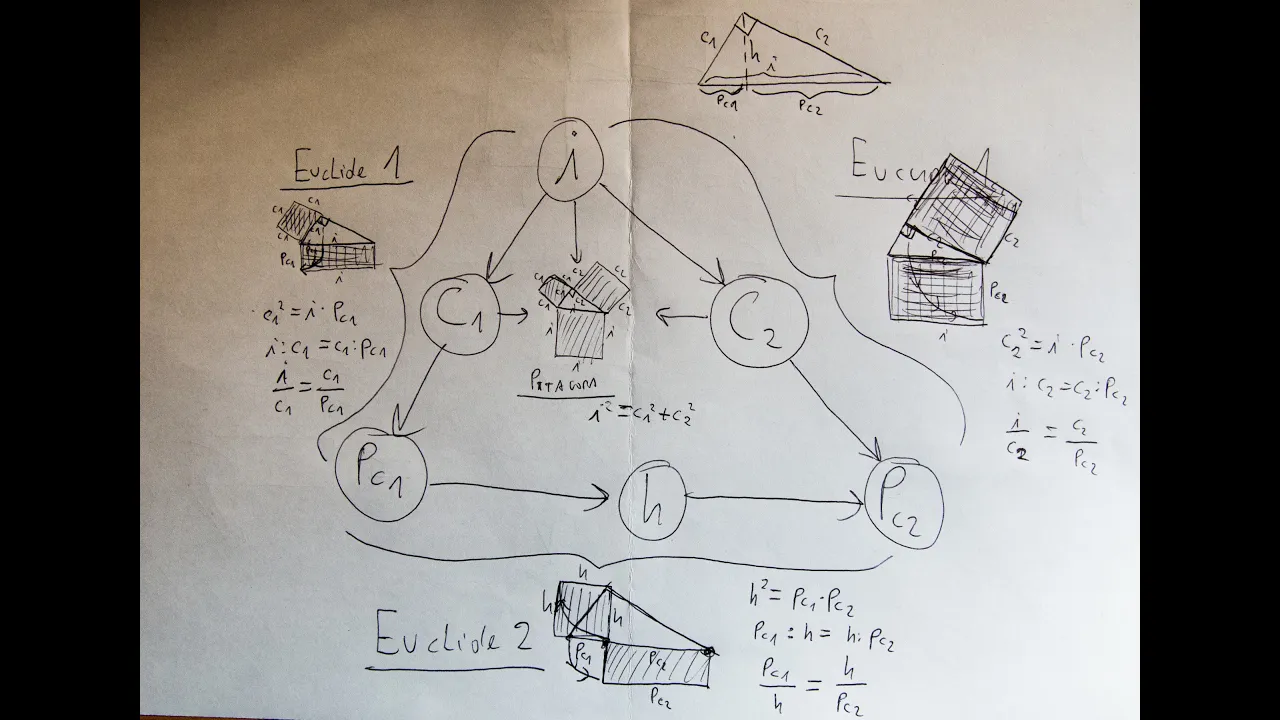 C1
C2
h
i
Pc1
Pc2
i
Euclide 1
c1
c1
c1
c1
i
Pc1
i
c1² = i · Pc1
i : c1 = c1 : Pc1
i/c1 = c1/Pc1
C1
C2
c1
c1
c1
c2
c2
c2
i
i
i
PITAGORA
i² = c1² + c2²
c2
c2
Pc2
i
c2² = i · Pc2
i : c2 = c2 : Pc2
i/c2 = c2/Pc2
Pc1
h
Pc2
Euclide 2
h
h
h
Pc1
Pc2
Pc2
h² = Pc1 · Pc2
Pc1 : h = h : Pc2
Pc1/h = h/Pc2